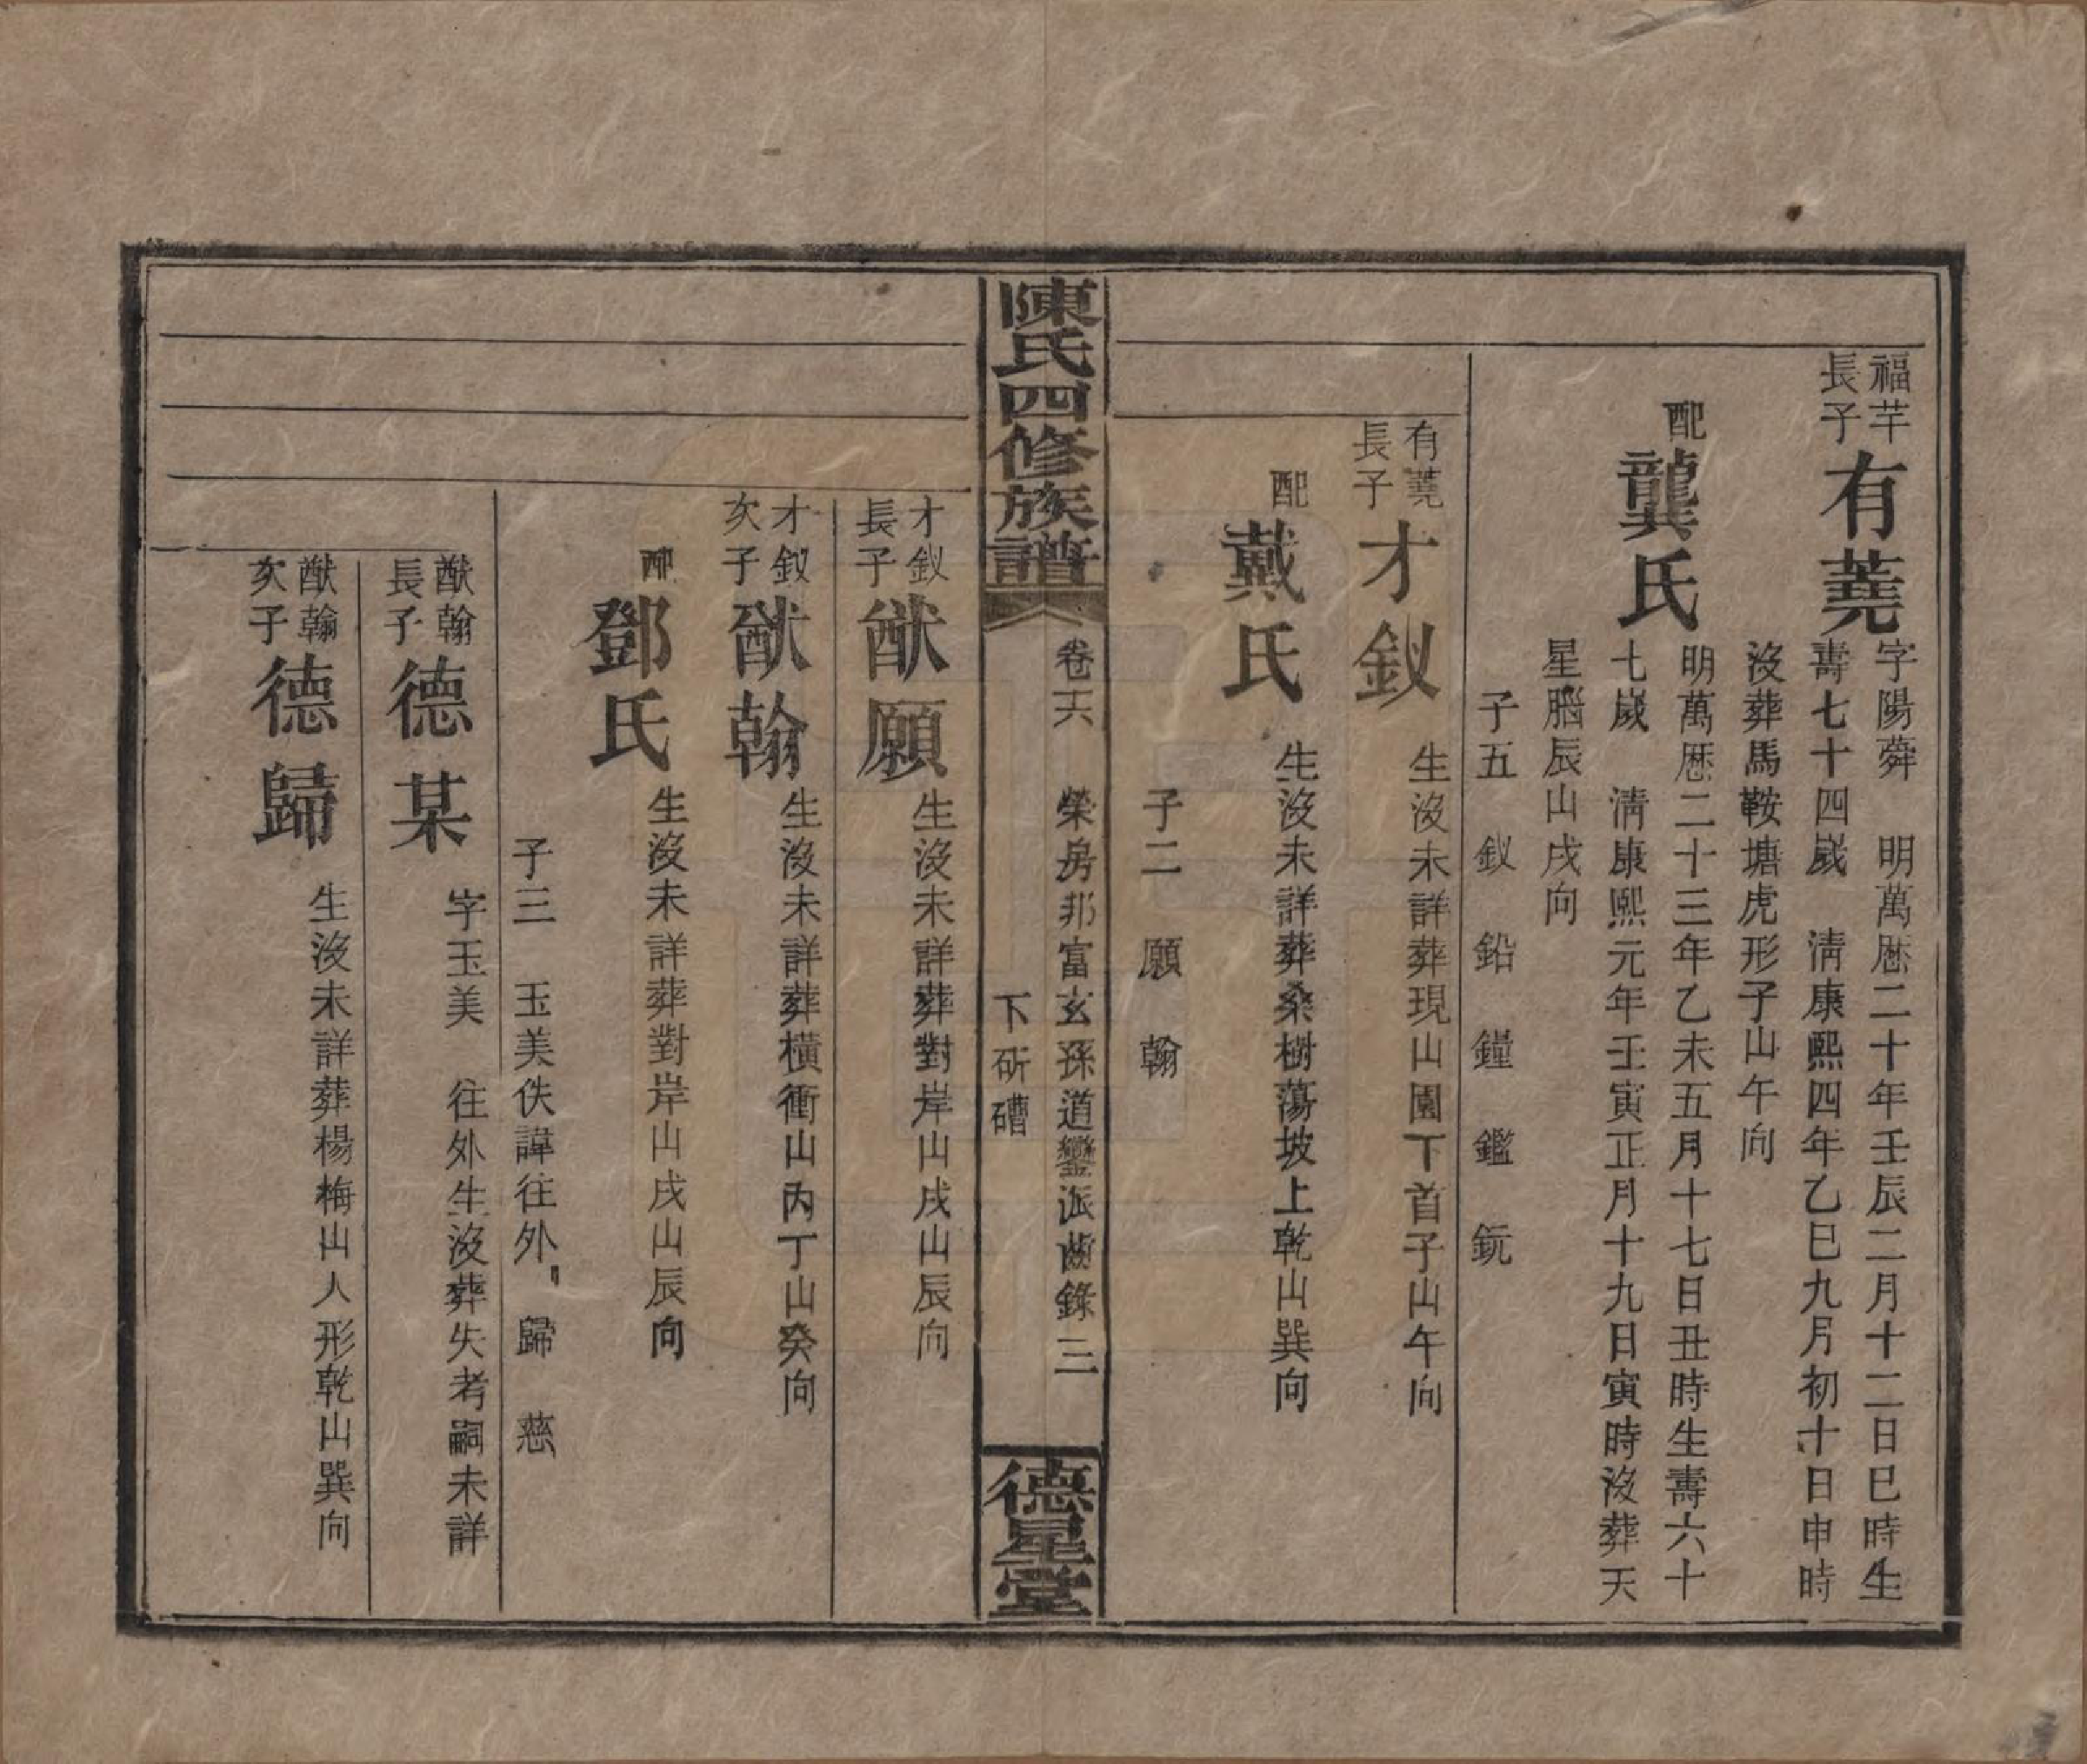 福芊
長子
有蕘
字陽蕣　明萬厯二十年壬辰二月十二日巳時生
壽七十四嵗　淸康熙四年乙巳九月初十日申時
沒葬馬鞍塘虎形子山午向
配
龔氏
明萬厯二十三年乙未五月十七日丑時生壽六十
七嵗　淸康熙元年壬寅正月十九日寅時沒葬天
星腦辰山戌向
子五　釵　鉛　鐘　鑑　鈨
有蕘
長子
才釵
生沒未詳葬現山園下首子山午向
配
戴氏
生沒未詳葬桑樹蕩坡上乾山巽向
子二　願　翰
陳氏四修族譜
卷六　榮房邦富玄孫道鑾派齒錄　三
下斫磄
德星堂
才釵
長子
猷願
生沒未詳葬對岸山戌山辰向
才釵
次子
猷翰
生沒未詳葬橫衝山內丁山癸向
配
鄧氏
生沒未詳葬對岸山戌山辰向
子三　玉美佚諱往外　歸　慈
猷翰
長子
德某
字玉美　往外生沒葬失考嗣未詳
猷翰
次子
德歸
生沒未詳葬楊梅山人形乾山巽向